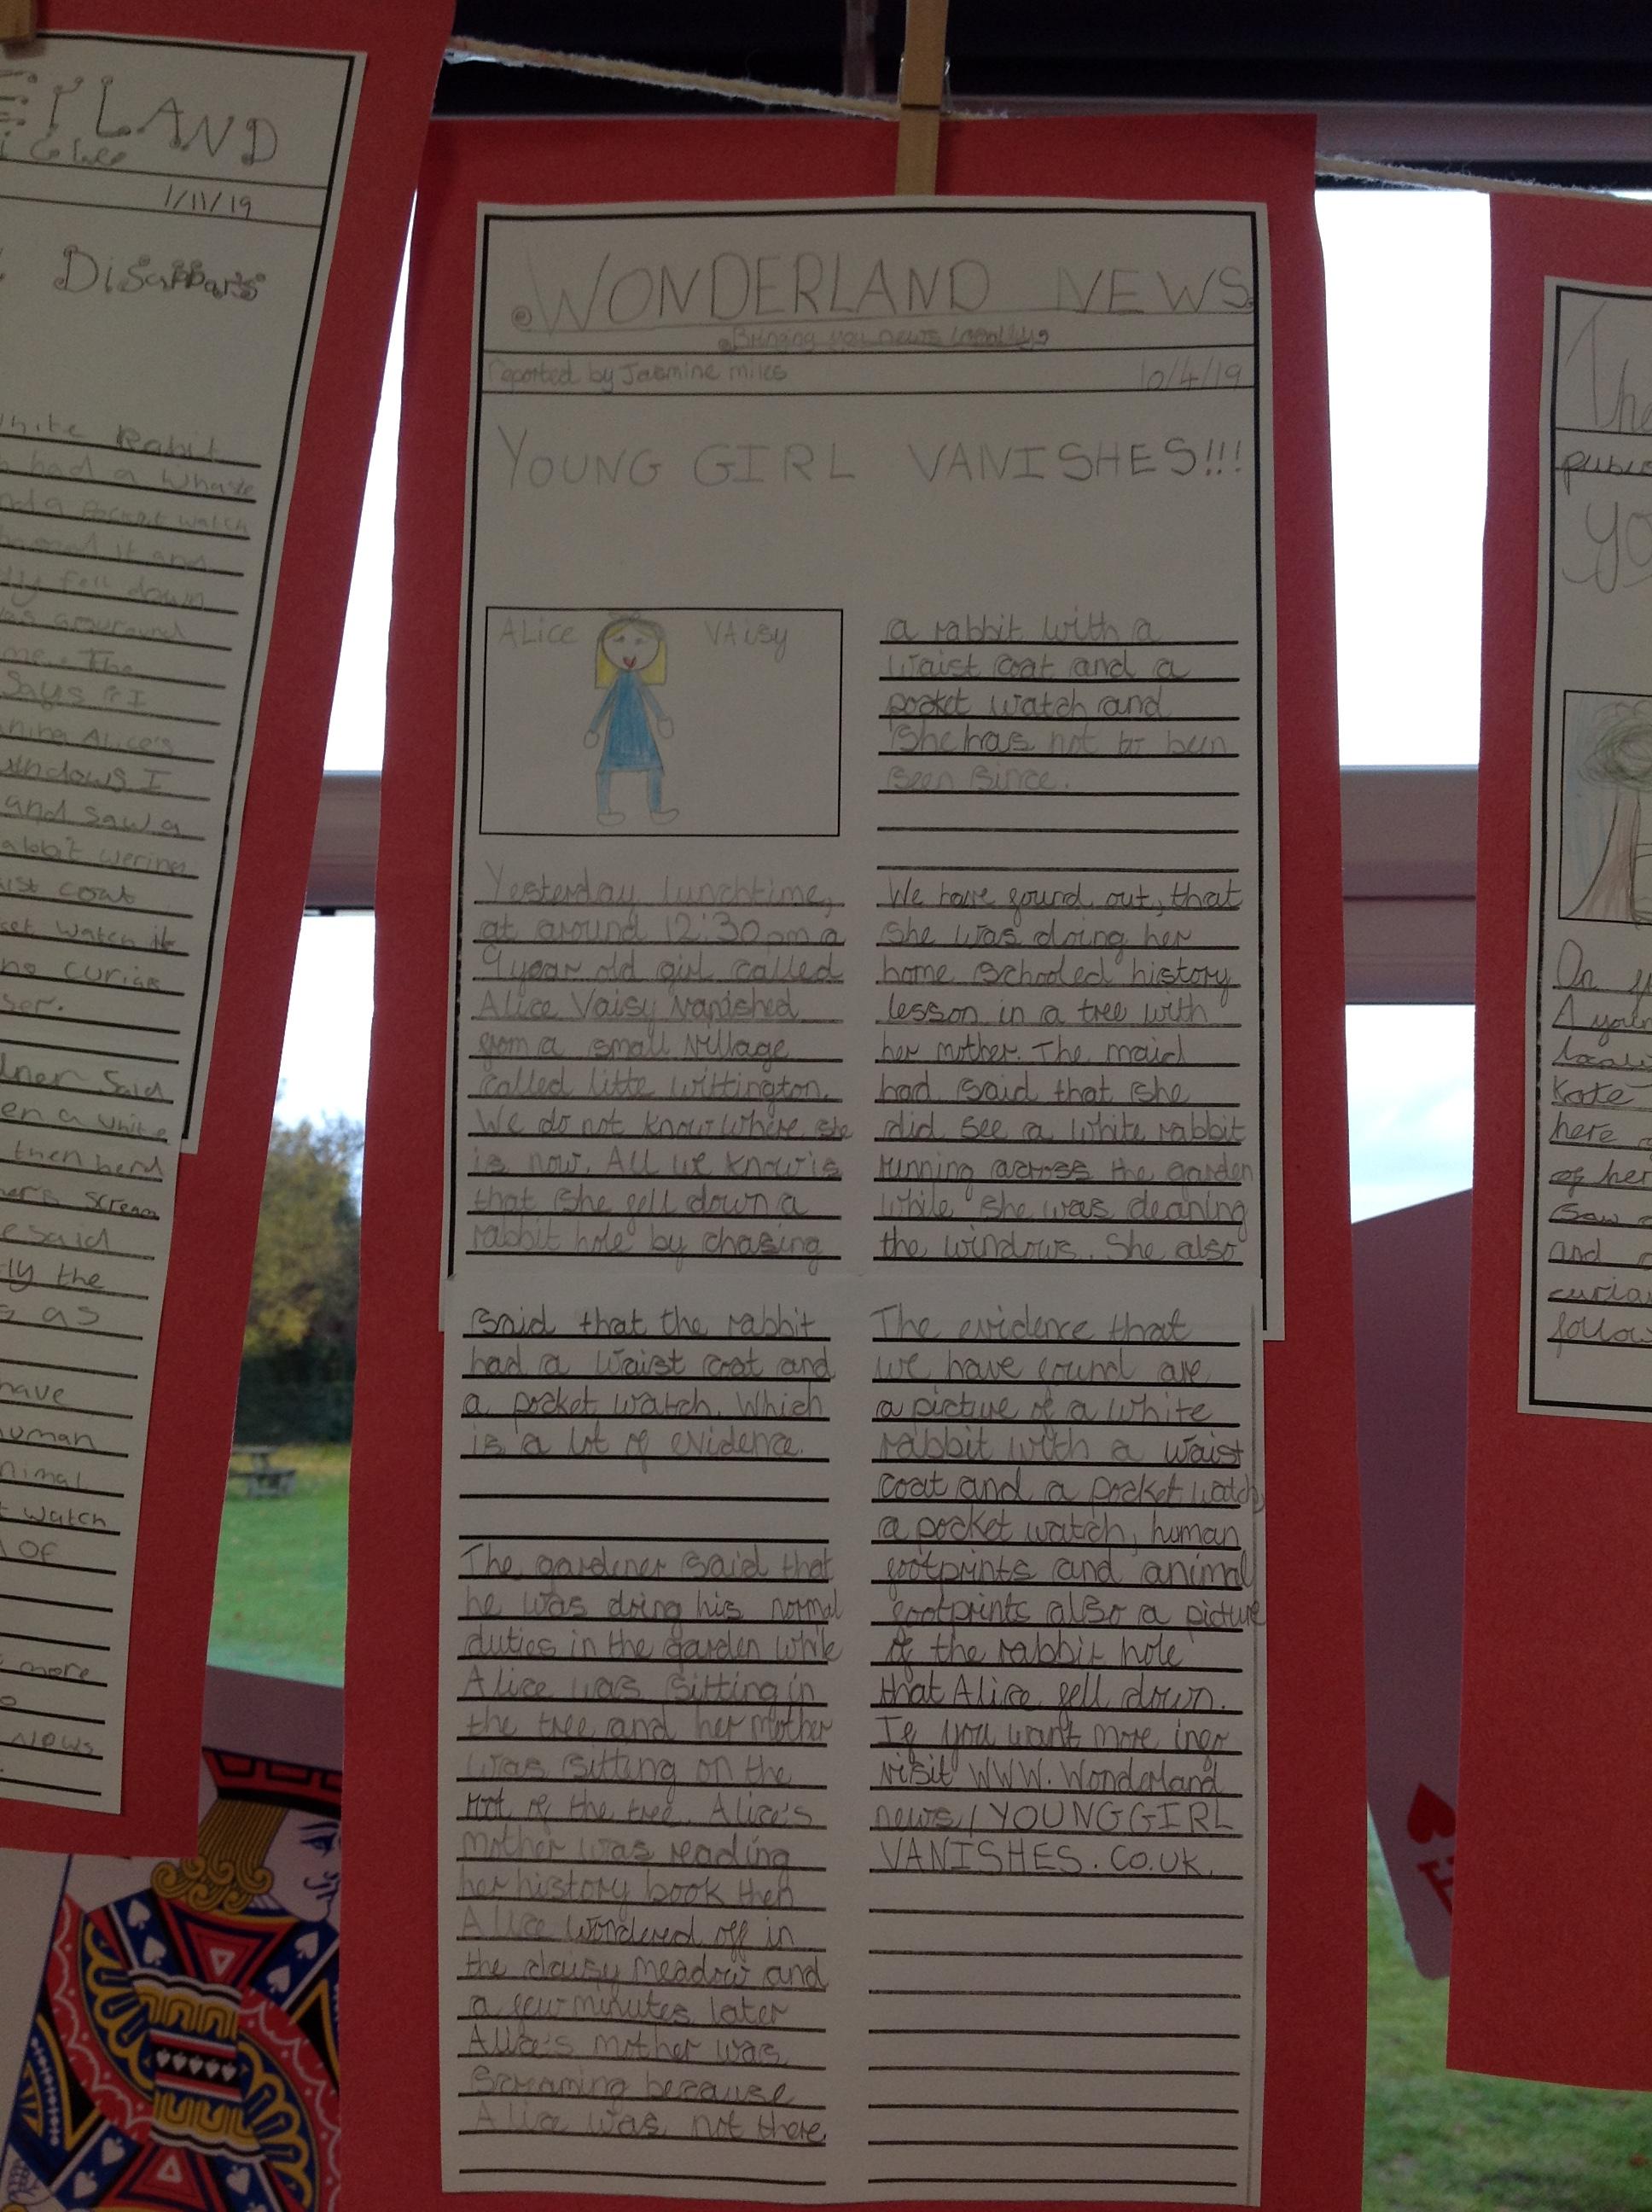 WONDERLAND NEWS
Bringing you news locally
reported by Jasmine miles
10/4/19
YOUNG GIRL VANISHES!!!
ALice VAisy
Yesterday lunchtime,
at around 12:30pm a
9 year old girl called
Alice Vaisy Vanished
from a small village
called little wittington.
We do not know where she
is now. All we know is
that she fell down a
rabbit hole by chasing
a rabbit with a
waist coat and a
pocket watch and
she has not been
seen since.
We have found out, that
she was doing her
home schooled history
lesson in a tree with
her mother. The maid
had said that she
did see a white rabbit
running across the garden
while she was cleaning
the windows. She also
said that the rabbit
had a waist coat and
a pocket watch. Which
is a lot of evidence.
The gardener said that
he was doing his normal
duties in the garden while
Alice was sitting in
the tree and her mother
was sitting on the
of the tree. Alice's
mother was reading
her history book then
Alice wondered off in
the daisy meadow and
a few minutes later
Alice's mother was
screaming because
Alice was not there
The evidence that
we have found are
a picture of a white
rabbit with a waist
coat and a pocket watch,
a pocket watch, human
footprints and animal
footprints also a picture
of the rabbit hole
that Alice fell down.
If you want more info
visit WWW.Wonderland
news/YOUNGGIRL
VANISHES.CO.UK.
LAND
1/11/19
Disappars
white Rabit
had a whase
pocket watch
it and
fell down
arouround
me. The
Says "I
Alice's
windows I
and saw a
rabbit wering
coat
watch it
curias
Said
en a white
then herd
scream
e said
the
as
have
human
animal
watch
of
more
News
The
yo
On
A
Kate
here
of her
Saw
and
curias
follow